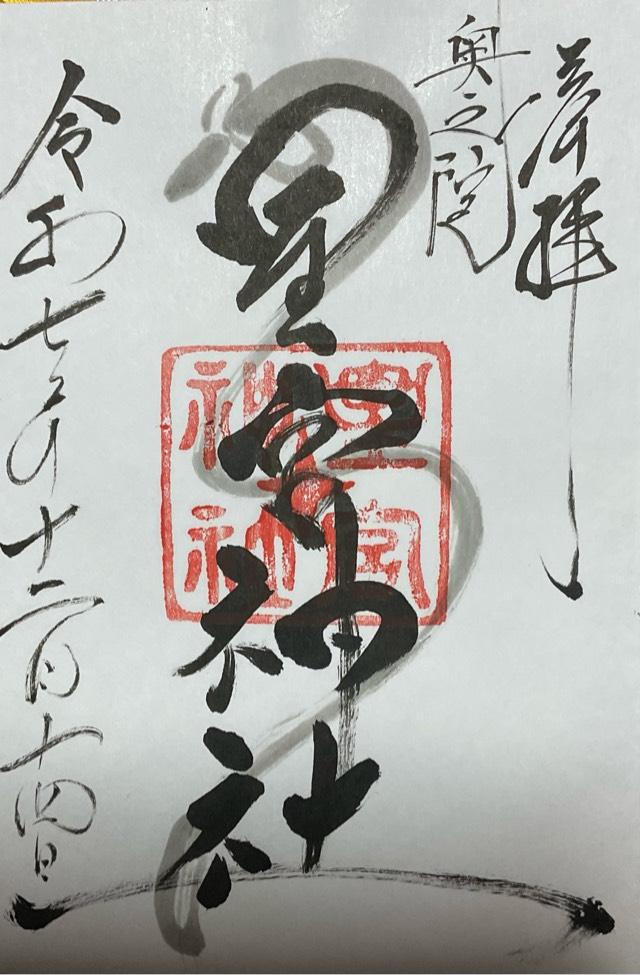 奉拝
奥之院
星宮神社
星宮神社
令和七年十二月十四日